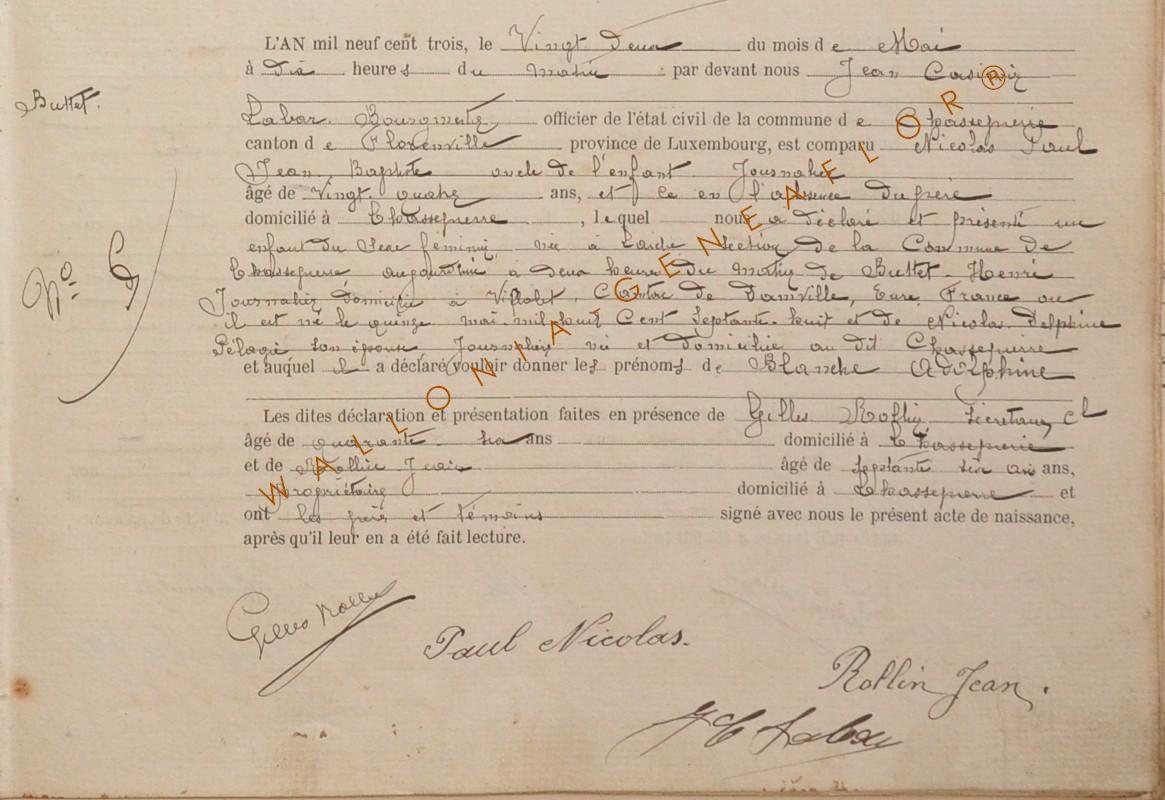 L'AN mil neuf cent trois, le Vingt Deux du mois de Mai
à dix heures du matin par devant nous Jean Casimir
Buttet.
Labar Bourgmestre officier de l'état civil de la commune de Chassepierre
canton de Florenville province de Luxembourg, est comparu Nicolas Paul
Jean Baptiste oncle de l'enfant Journalier
âgé de Vingt quatre ans, et ce en l'absence du père
domicilié à Chassepierre, lequel nous a déclaré et présenté un
enfant du Sexe féminin, née à Laiche Section de la Commune de
Chassepierre aujourd'hui à deux heures du matin de Buttet Henri
No 6
Journalier domicilié à Canton de Damville, Eure, France où
il est né le quinze mai mil huit Cent Septante-huit et de Nicolas Delphine
Pélagie son épouse née et domiciliée au dit Chassepierre
et auquel il a déclaré vouloir donner les prénoms de Blanche Adolphine
Les dites déclaration et présentation faites en présence de Gilles Rollin, Secrétaire cl
âgé de quarante ans domicilié à Chassepierre
et de Rollin Jean âgé de Septante six ans ans,
Propriétaire domicilié à Chassepierre et
ont les père et témoins signé avec nous le présent acte de naissance,
après qu'il leur en a été fait lecture.
Gilles Rollin
Paul Nicolas.
Rollin Jean.
JC Labar
WALLONIA-GENEALOR®